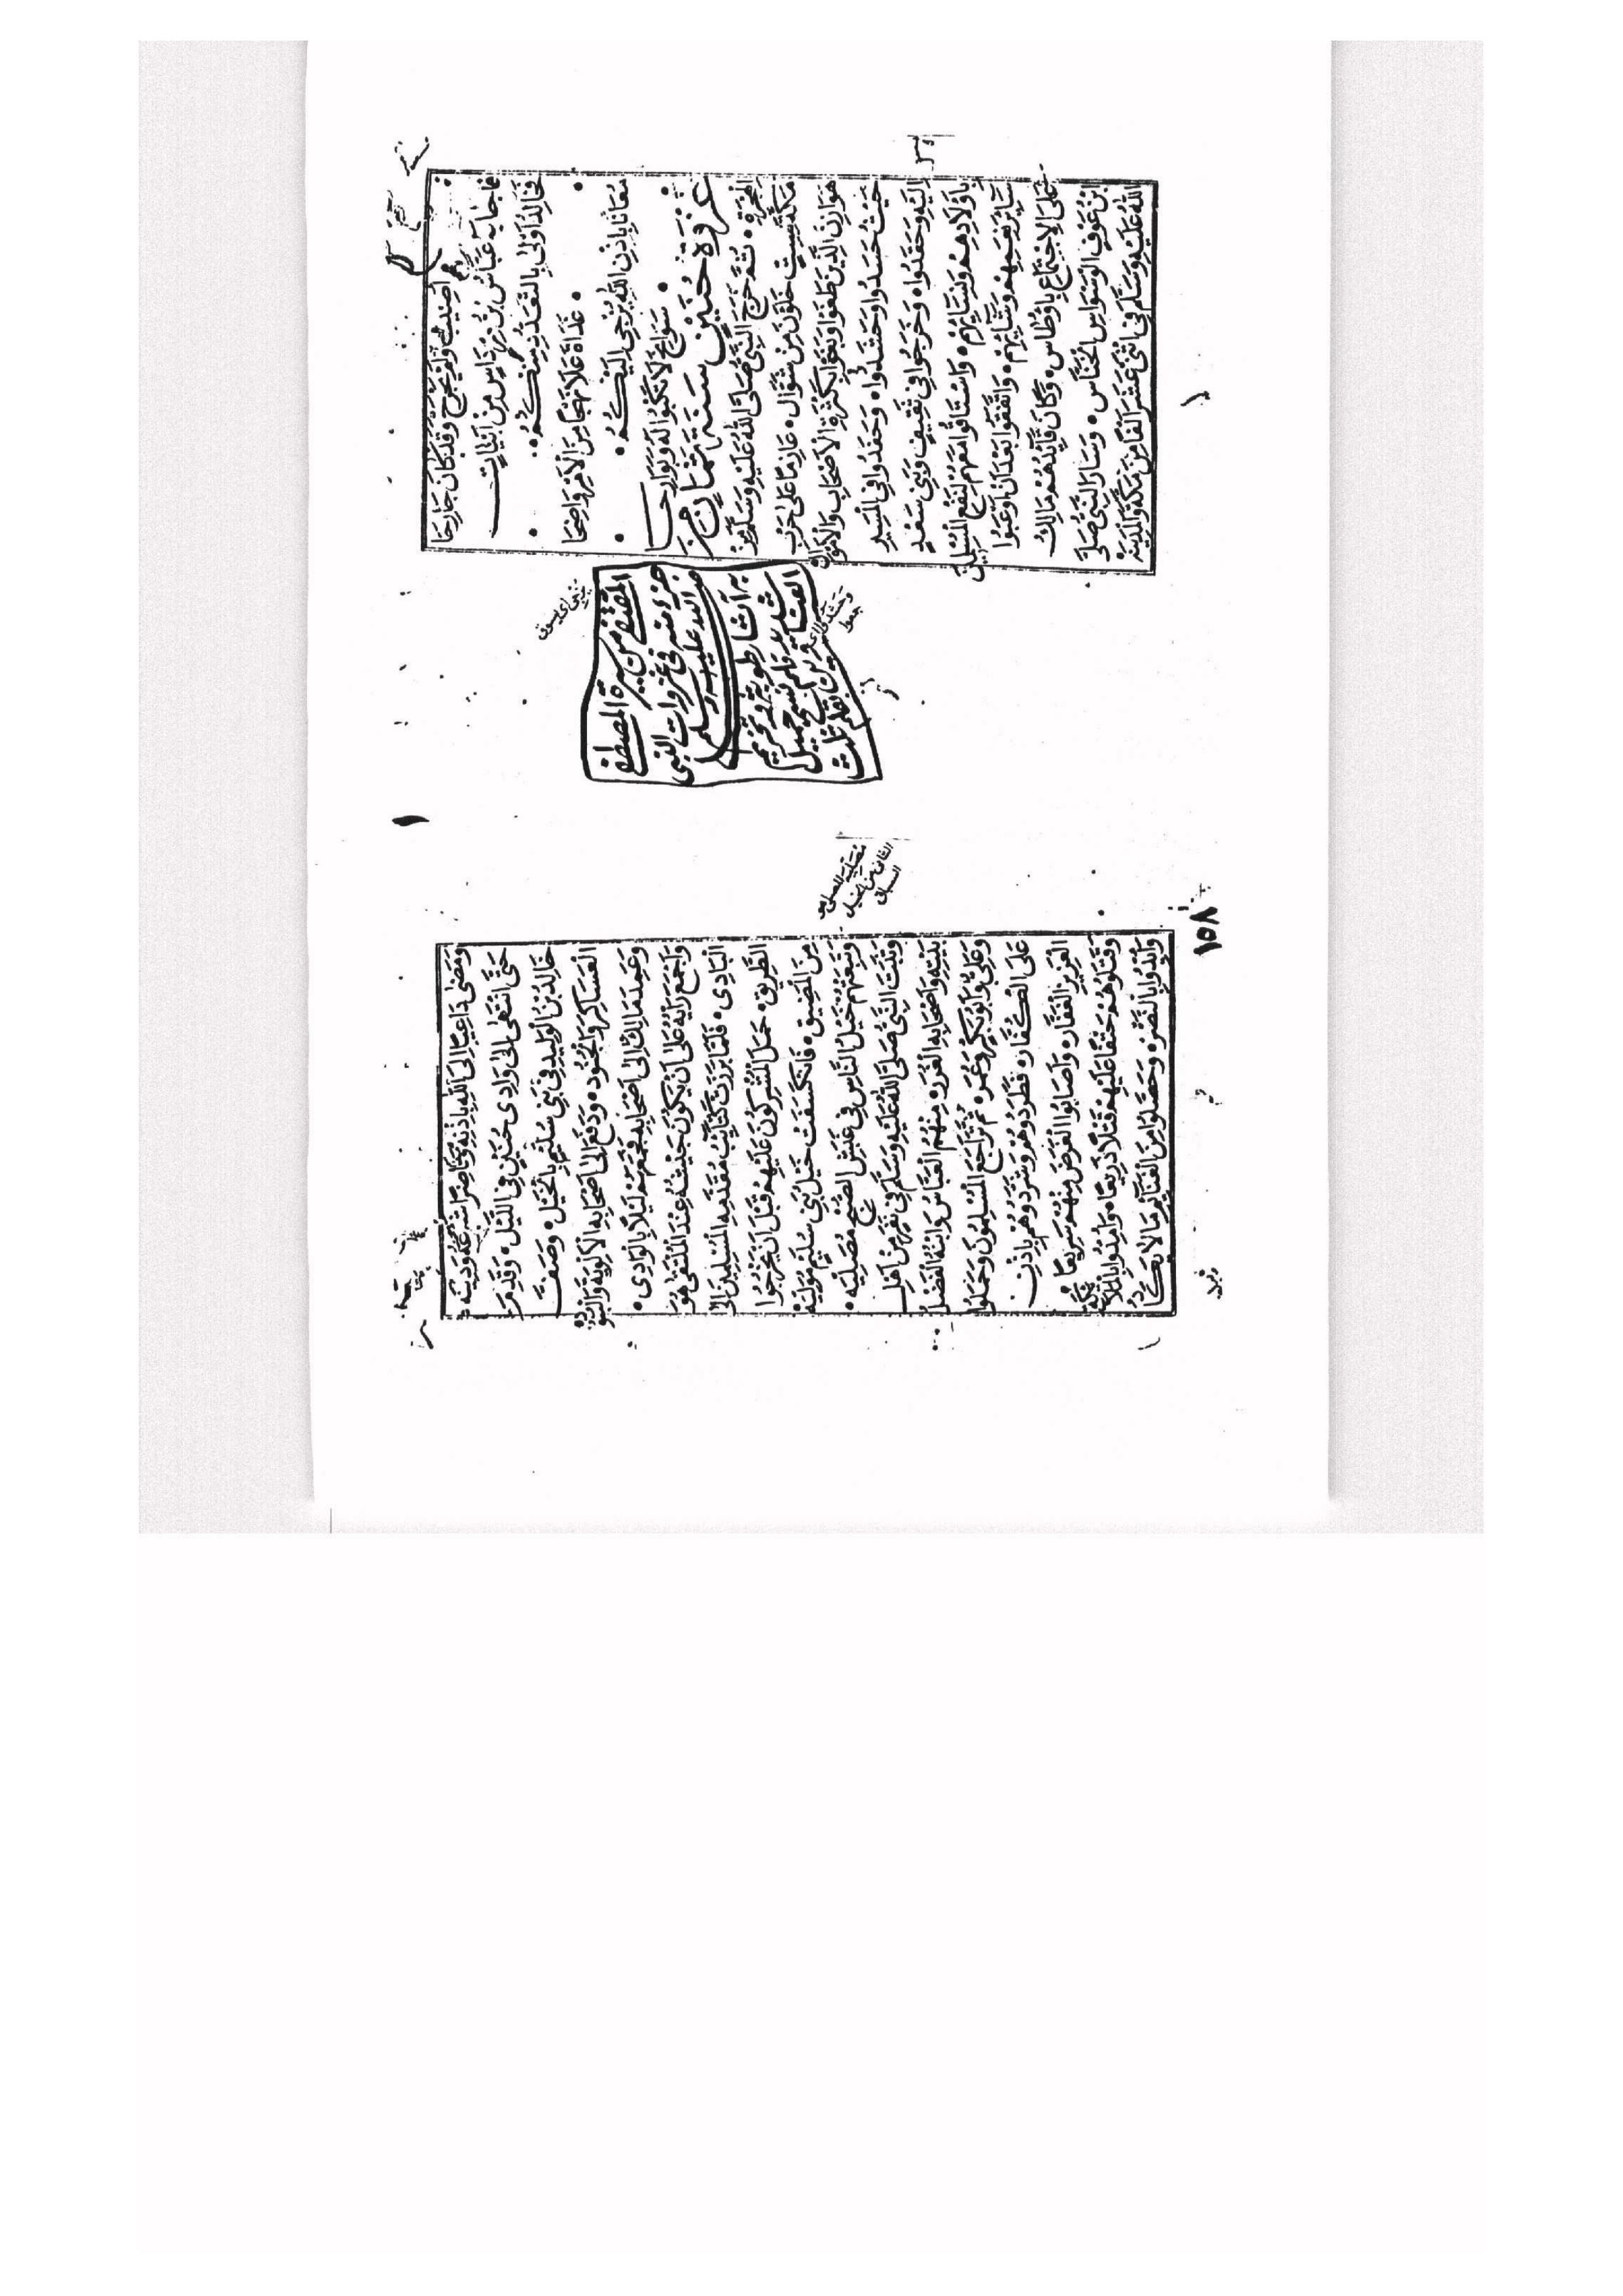 أُصِيبَ وَلَمْ يَجْرَحْ وَقَدْ كَانَ جَارِحَا
فَأَجَابَهُ عَبَّاسُ بْنُ مِرْدَاسٍ مِنْ أَبْيَاتٍ
فَخَالِدٌ أَوْلَى بِالتَّعَذُّرِ مِنْكُمُ
غَدَاةَ عَلَا نَهْجًا مِنَ الْأَمْرِ وَاضِحَا
مُعَانًا بِإِذْنِ اللهِ يُزْجِى إِلَيْكُمُ
سَوَانِحَ لَا تَكْبُوا لَهُ وَبَوَارِحَا
غَزْوَة حُنَيْنٍ سَنَةَ ثَمَانٍ مِنَ
الْهِجْرَةِ. ثُمَّ خَرَجَ النَّبِىُّ صَلَّى اللهُ عَلَيْهِ وَسَلَّمَ مِنْ
مَكَّةَ لِسِتٍّ خَلَوْنَ مِنْ شَوَّال. عَازِمًا عَلَى حَرْبِ
هَوَازِنَ الَّذِينَ طَغَوْا وَبَغَوْا بِكَثْرَةِ الْأَصْحَابِ وَالْأَمْوَالِ
حَيْثُ حَسَدُوا وَحَشَدُوا. وَحَفَدُوا فِى الْمَسِيرِ
إِلَيْهِ وَحَقَدُوا. وَخَرَجُوا فِى ثَقِيفٍ وَبَنِى سَعْدٍ
بِأَوْلَادِهِمْ وَنِسَائِهِمْ. وَاسْتَاقُوا مَعَهُمْ لِنَفْعِ الْمُسْلِمِينَ
سَائِرَ نَعَمِهِمْ وَشَائِهِمْ. وَاتَّفَقُوا بَعْدَ أَنْ أَوْعَبُوا
عَلَى الْإِجْتِمَاعِ بِأَوْطَاس. وَكَانَ قَائِدُهُمْ مَالِكُ
بْنُ عَوْفٍ الْوَسْوَاسِ الْخَنَّاس. وَسَارَ النَّبِىُّ صَلَّى
اللهُ عَلَيْهِ وَسَلَّمَ فِى اثْنَى عَشَرَ أَلْفًا مِنْ مَكَّةَ وَالْمَدِينَةِ
المقتفى من سيرة المصطفى
جزء منه فى غزوات النبى
صلى الله عليه وسلم
به آثار رطوبة وتخريم
شديد قلم نسخ جميل
العناوين بقلم ثلث
وَمَضَى دَاعِيًا إِلَى اللهِ بِإِذْنِهِ وَنَاصِرًا شَرْعَهُ وَدِينَه
حَتَّى انْتَهَى إِلَى وَادِى حُنَيْنٍ فِى اللَّيْل. وَقَدَّمَ
خَالِدَ بْنَ الْوَلِيدِ فِى بَنِى سُلَيْمٍ بِالْخَيْل. وَصَفَّ
الْعَسَاكِرَ وَالْجُنُود. وَدَفَعَ إِلَى أَصْحَابِهِ الْأَلْوِيَةَ وَالْبُنُود
وَعَمَدَ مَالِكٌ إِلَى أَصْحَابِهِ فَجَمَعَهُمْ لَيْلًا بِالْوَادِى.
وَأَجْمَعَ رَأْيَهُ عَلَى أَنْ يَكُونَ جَيْشُهُ عِنْدَ الْمُلْتَقَى هُوَ
الْبَادِى. فَلَمَّا بَرَزَتْ كَتَائِبُ مُقَدَّمَةِ الْمُسْلِمِينَ إِلَى
الطَّرِيق. حَمَلَ الْمُشْرِكُونَ عَلَيْهِمْ قَبْلَ أَنْ يَخْرُجُوا
مِنَ الْمَضِيق. فَانْكَشَفَتْ خَيْلُ بَنِى سُلَيْمٍ مُوَلِّيَه
وَتَبِعَتْهُمْ خَيْلُ النَّاسِ فِى غَبَشِ الصُّبْحِ مُصَلِّيَه.
وَثَبَتَ النَّبِىُّ صَلَّى اللهُ عَلَيْهِ وَسَلَّمَ فِى نَفَرٍ مِنْ أَهْلِ
بَيْتِهِ وَأَصْحَابِهِ الْغُرَر. مِنْهُمُ الْعَبَّاسُ وَابْنُهُ الْفَضْلُ
وَعَلِىٌّ وَأَبُو بَكْرٍ وَعُمَر. ثُمَّ تَرَاجَعَ الْمُسْلِمُونَ وَحَمَلُوا
عَلَى الْكُفَّار. فَطَرَدُوهُمْ وَشَرَّدُوهُمْ بِإِذْنِ
الْعَزِيزِ الْغَفَّار. وَأَصَابُوا الْغَرَضَ مِنْهُمْ سَرِيعًا
وَقَتَلُوهُمْ حَنَقًا عَلَيْهِمْ قَتْلًا ذَرِيعًا. وَأُمِدُّوا بِالْمَلَائِكَةِ
وَأُيِّدُوا بِالنَّصْر. وَحَصَلُوا مِنَ الْغَنَائِمِ مَا لَا يَكَادُ
١٥٨